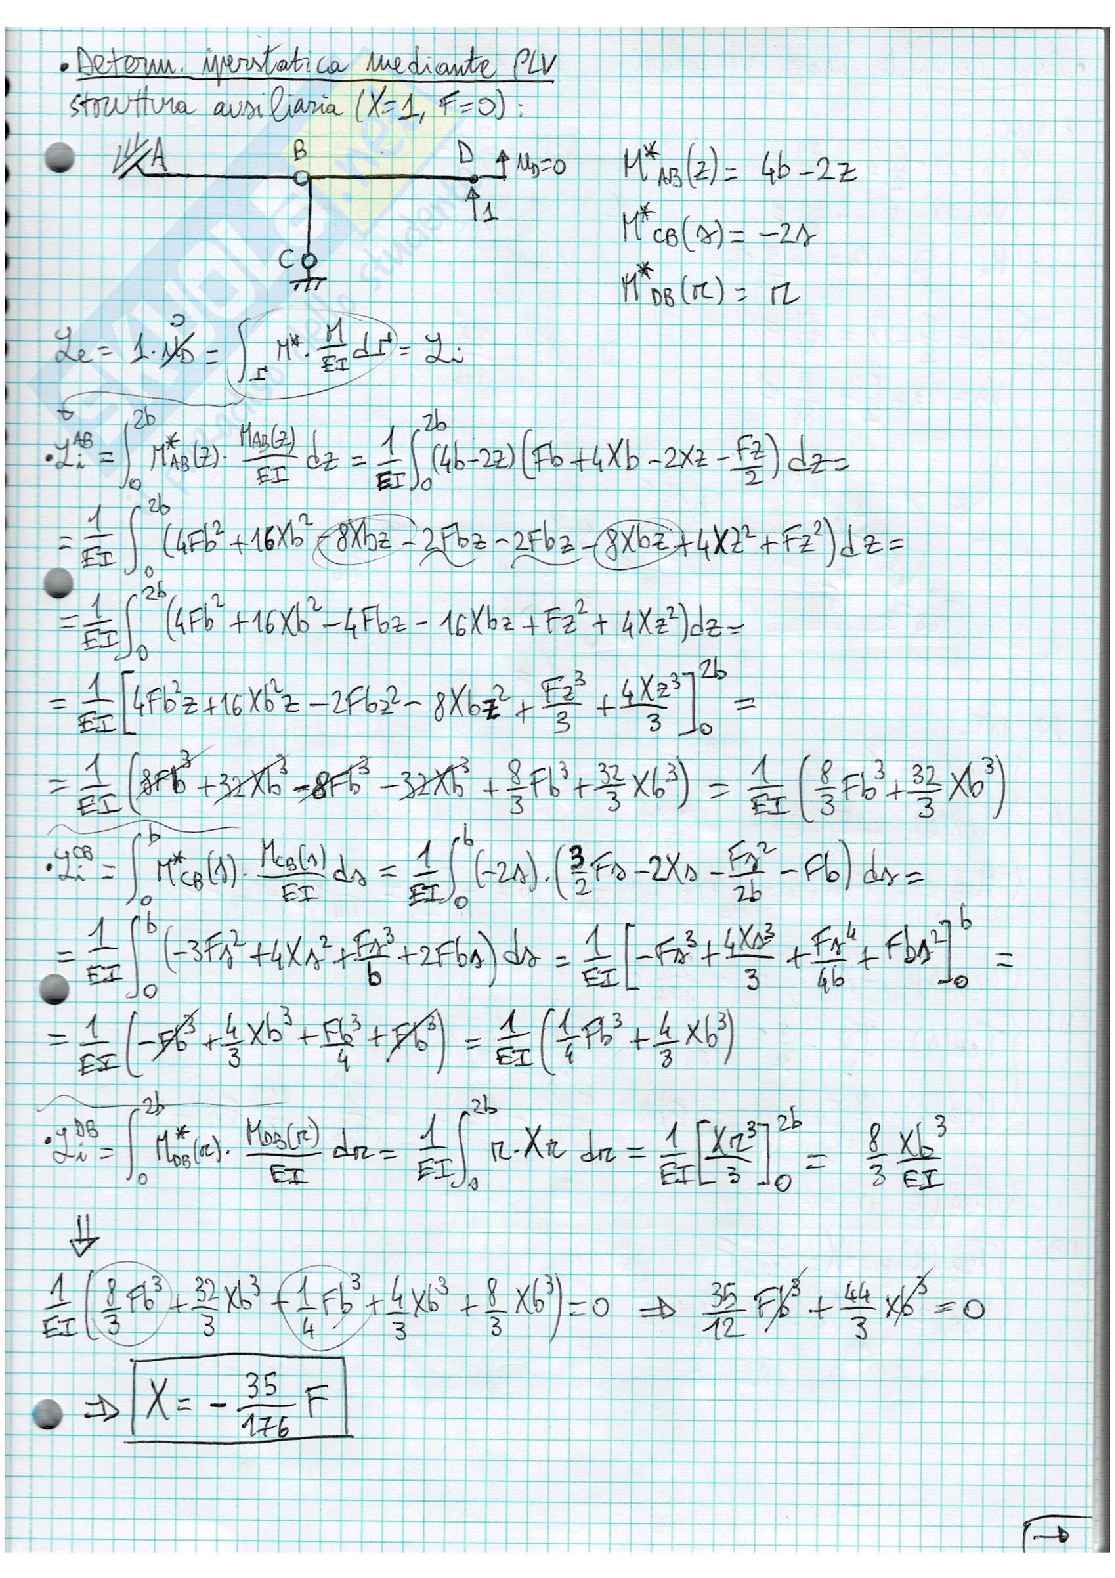 • Determ. iperstatica mediante PLV
struttura ausiliaria (X=1, F=0):
A B D u_D=0 M*_AB(z) = 4b-2z
1
M*_CB(s) = -2s
C
M*_DB(r) = r
L_e = 1·u_D = ∫_Γ M*·M/EI dΓ = L_i
0
• L_i^AB = ∫_0^2b M*_AB(z)·M_AB(z)/EI dz = 1/EI ∫_0^2b (4b-2z)(Fb+4Xb-2Xz-Fz/2) dz =
= 1/EI ∫_0^2b (4Fb²+16Xb²-8Xbz-2Fbz-2Fbz-8Xbz+4Xz²+Fz²) dz =
= 1/EI ∫_0^2b (4Fb²+16Xb²-4Fbz-16Xbz+Fz²+4Xz²) dz =
= 1/EI [4Fb²z+16Xb²z-2Fbz²-8Xbz²+Fz³/3+4Xz³/3]_0^2b =
= 1/EI (8Fb³+32Xb³-8Fb³-32Xb³+8/3 Fb³+32/3 Xb³) = 1/EI (8/3 Fb³+32/3 Xb³)
• L_i^CB = ∫_0^b M*_CB(s)·M_CB(s)/EI ds = 1/EI ∫_0^b (-2s)·(3/2 Fs-2Xs-Fs²/2b-Fb) ds =
= 1/EI ∫_0^b (-3Fs²+4Xs²+Fs³/b+2Fbs) ds = 1/EI [-Fs³+4Xs³/3+Fs⁴/4b+Fbs²]_0^b =
= 1/EI (-Fb³+4/3 Xb³+Fb³/4+Fb³) = 1/EI (1/4 Fb³+4/3 Xb³)
• L_i^DB = ∫_0^2b M*_DB(r)·M_DB(r)/EI dr = 1/EI ∫_0^2b r·Xr dr = 1/EI [Xr³/3]_0^2b = 8/3 Xb³/EI
⇓
1/EI (8/3 Fb³+32/3 Xb³+1/4 Fb³+4/3 Xb³+8/3 Xb³)=0 ⇒ 35/12 Fb³+44/3 Xb³=0
⇒ X = -35/176 F
→